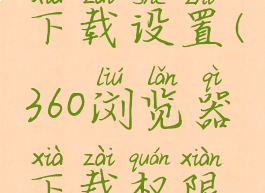 xià zài shè zhì
下载设置(
liú lǎn qì
360浏览器
xià zài quán xiàn
下载权限